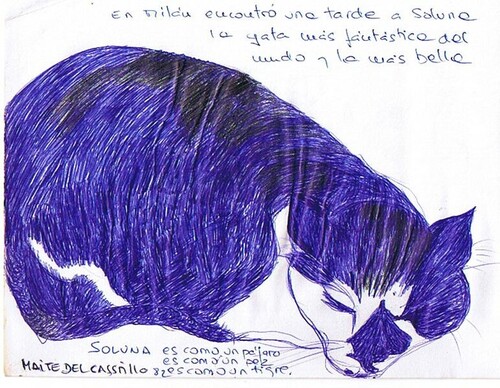 En Milán encontró una tarde a Soluna
la gata más fantástica del
mundo y la más bella
SOLUNA es como un pájaro
es como un pez
MAITE DEL CASTILLO 82 es como un tigre.